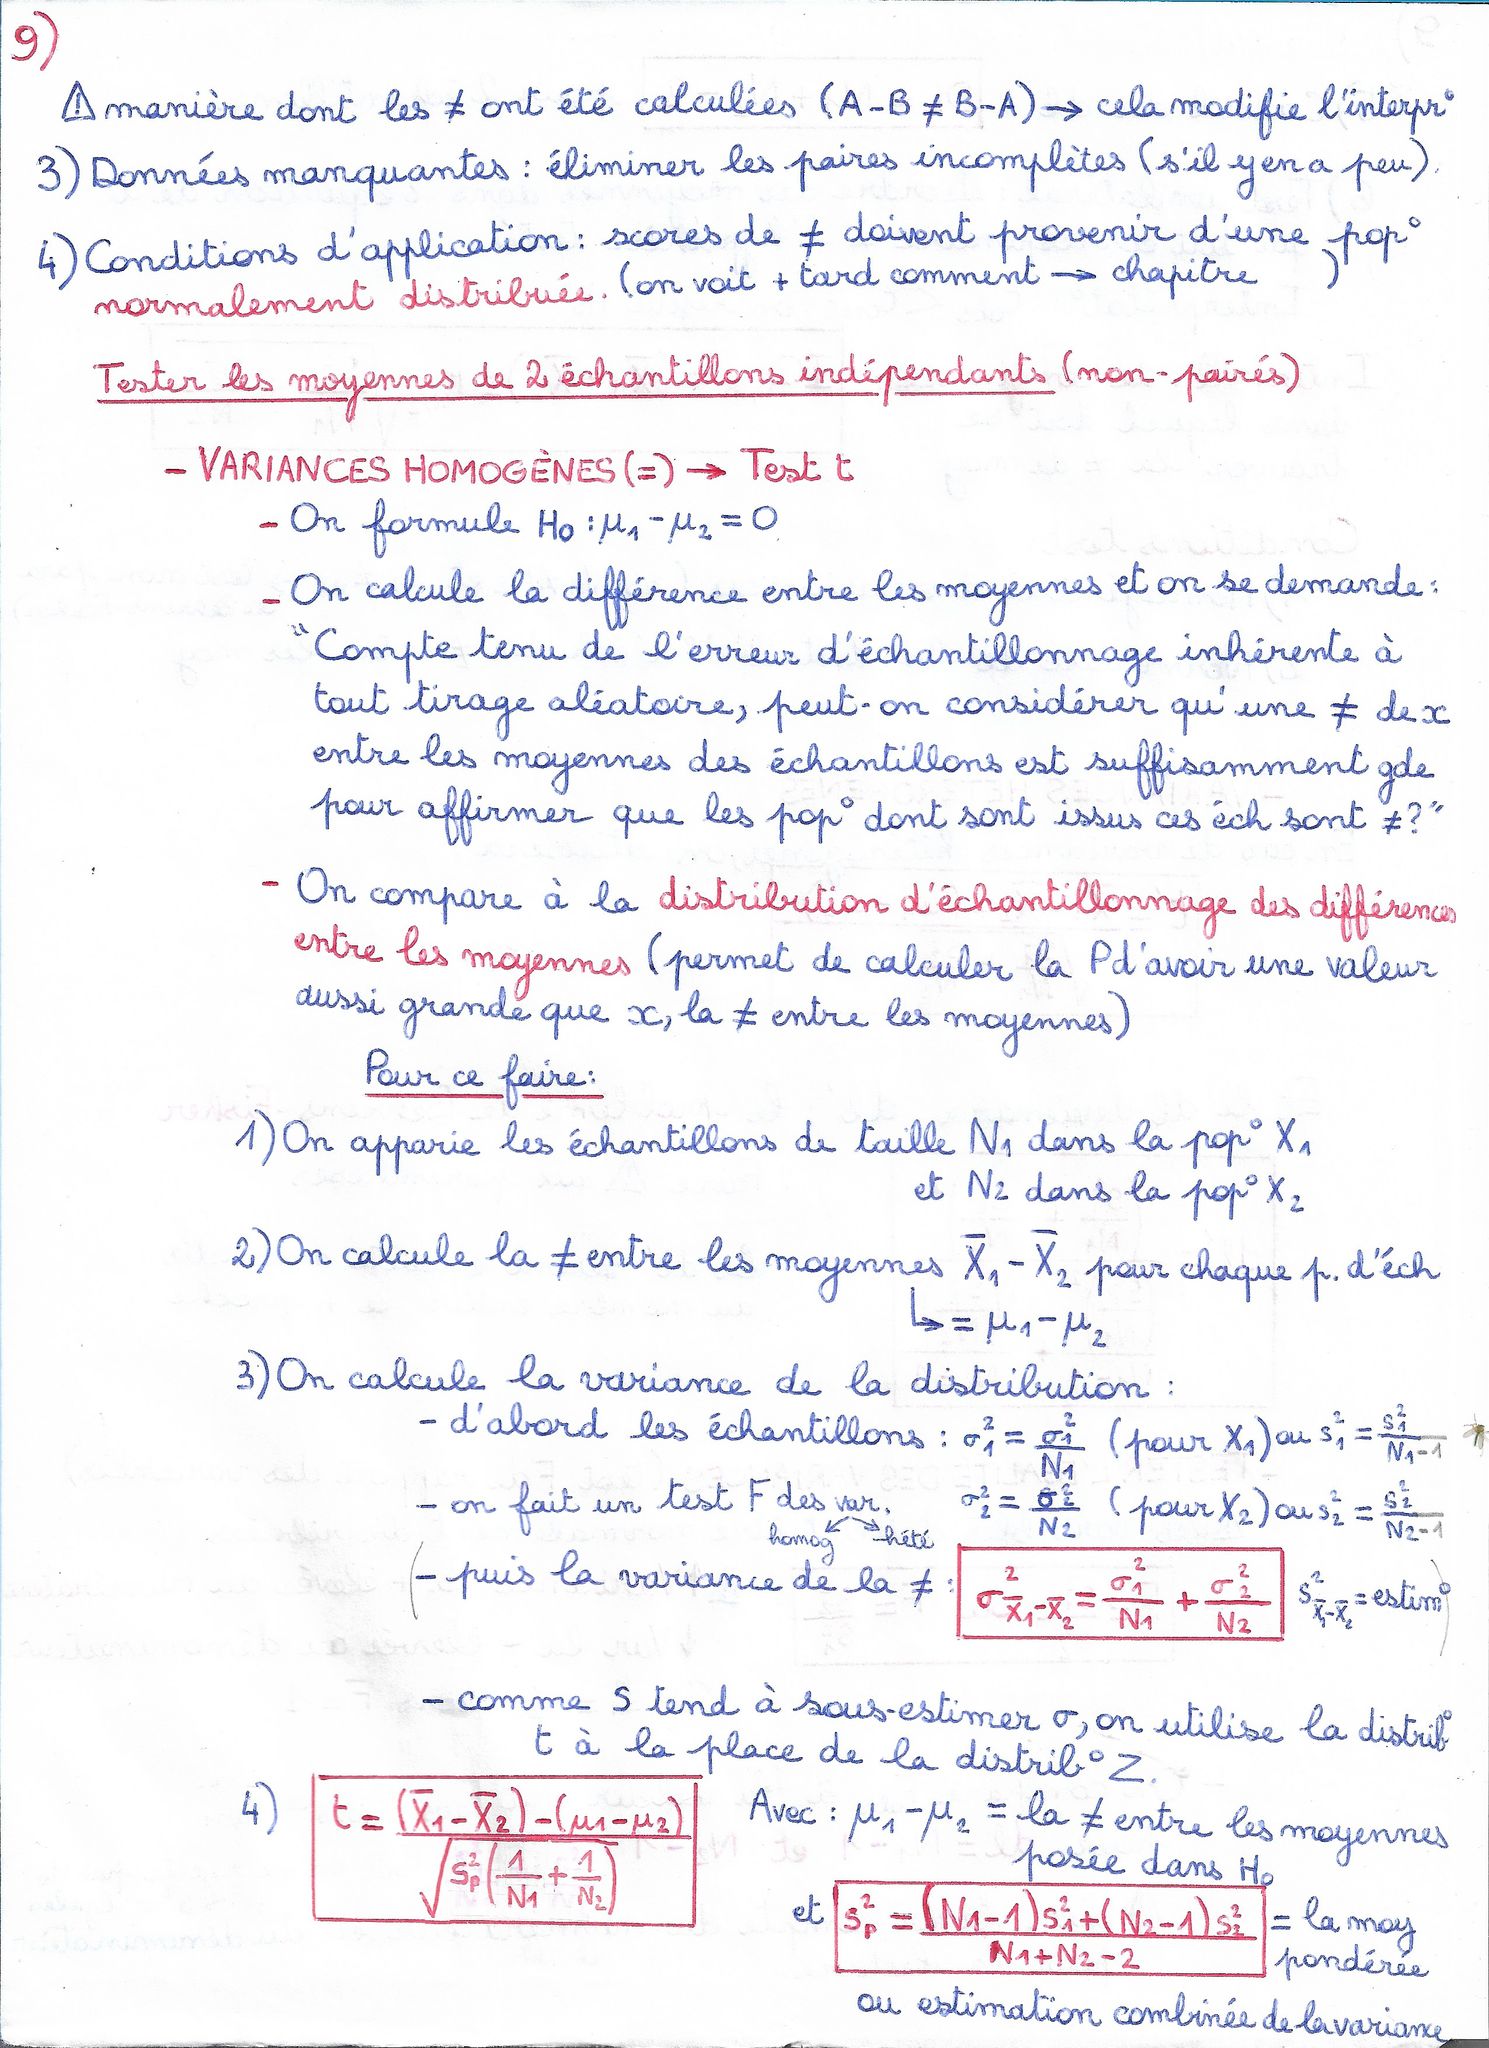 9)
⚠ manière dont les ≠ ont été calculées (A-B ≠ B-A) → cela modifie l'interpr°
3) Données manquantes : éliminer les paires incomplètes (s'il y en a peu).
4) Conditions d'application : scores de ≠ doivent provenir d'une pop°
normalement distribuée. (on voit + tard comment → chapitre )
Tester les moyennes de 2 échantillons indépendants (non-pairés)
- VARIANCES HOMOGÈNES (=) → Test t
- On formule H0 : μ1 - μ2 = 0
- On calcule la différence entre les moyennes et on se demande :
"Compte tenu de l'erreur d'échantillonnage inhérente à
tout tirage aléatoire, peut-on considérer qu'une ≠ de x
entre les moyennes des échantillons est suffisamment gde
pour affirmer que les pop° dont sont issus ces éch sont ≠?"
- On compare à la distribution d'échantillonnage des différences
entre les moyennes (permet de calculer la P d'avoir une valeur
aussi grande que x, la ≠ entre les moyennes)
Pour ce faire :
1) On apparie les échantillons de taille N1 dans la pop° X1
et N2 dans la pop° X2
2) On calcule la ≠ entre les moyennes X̄1 - X̄2 pour chaque p. d'éch
↳ = μ1 - μ2
3) On calcule la variance de la distribution :
- d'abord les échantillons : σ²1 = σ²1/N1 (pour X1) ou s²1 = s²1/N1-1
- on fait un test F des var. σ²2 = σ²2/N2 (pour X2) ou s²2 = s²2/N2-1
homog hété
(- puis la variance de la ≠ : σ²X̄1-X̄2 = σ²1/N1 + σ²2/N2 s²X̄1-X̄2 = estim°)
- comme S tend à sous-estimer σ, on utilise la distrib°
t à la place de la distrib° Z.
4) t = (X̄1 - X̄2) - (μ1 - μ2) / √(s²p (1/N1 + 1/N2)) Avec : μ1 - μ2 = la ≠ entre les moyennes
posée dans H0
et s²p = (N1-1)s²1 + (N2-1)s²2 / N1+N2-2 = la moy
pondérée
ou estimation combinée de la variance